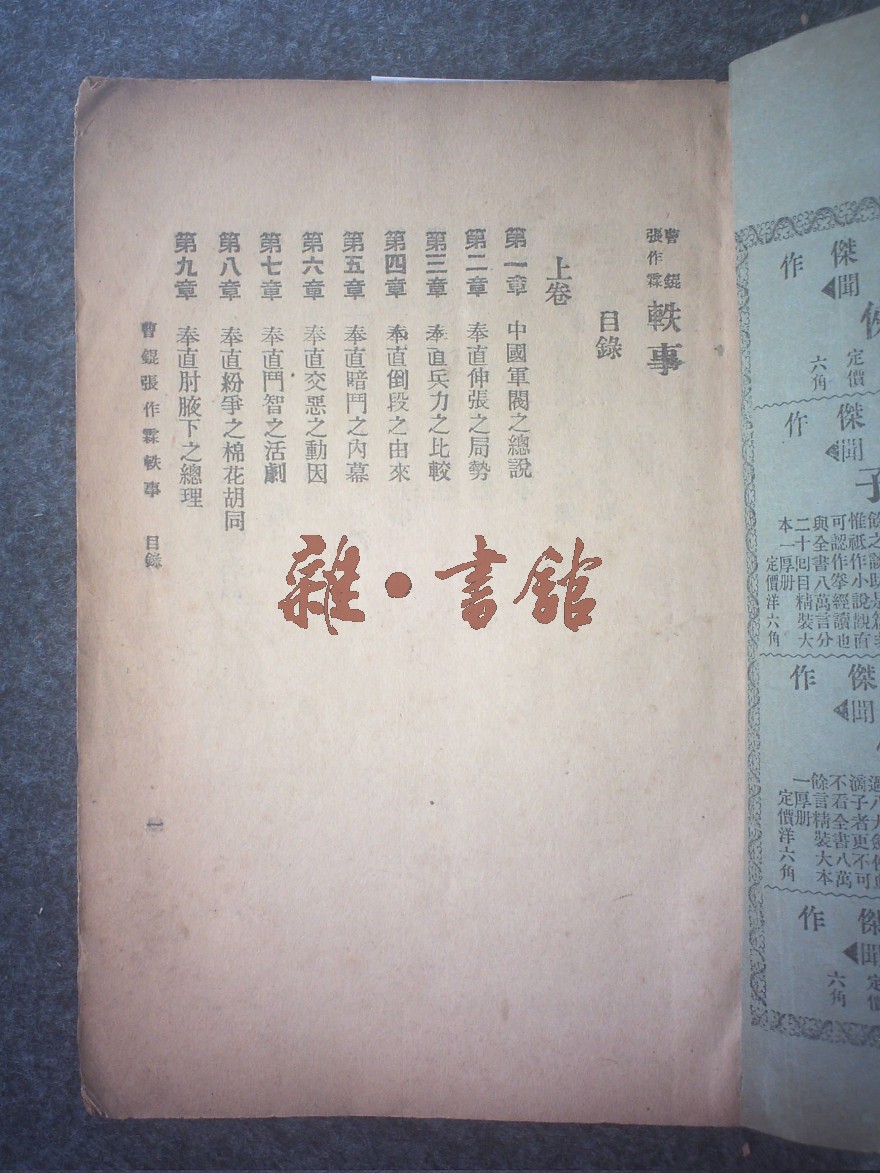 曹錕
張作霖
軼事
目錄
上卷
第一章 中國軍閥之總說
第二章 奉直伸張之局勢
第三章 奉直兵力之比較
第四章 奉直倒段之由來
第五章 奉直暗鬥之內幕
第六章 奉直交惡之動因
第七章 奉直鬥智之活劇
第八章 奉直紛爭之棉花胡同
第九章 奉直肘腋下之總理
曹錕張作霖軼事 目錄
一
雜·書館
傑作
聞
定價
六角
傑作
聞
子
惟祇作小說觀直
可認作拳經讀也
與全書八萬言分
二十回目精裝大
本一厚册
定價洋六角
傑作
聞
滴子者更不可
不看全書八萬
餘言精裝大本
一厚册
定價洋六角
傑作
聞
定價
六角